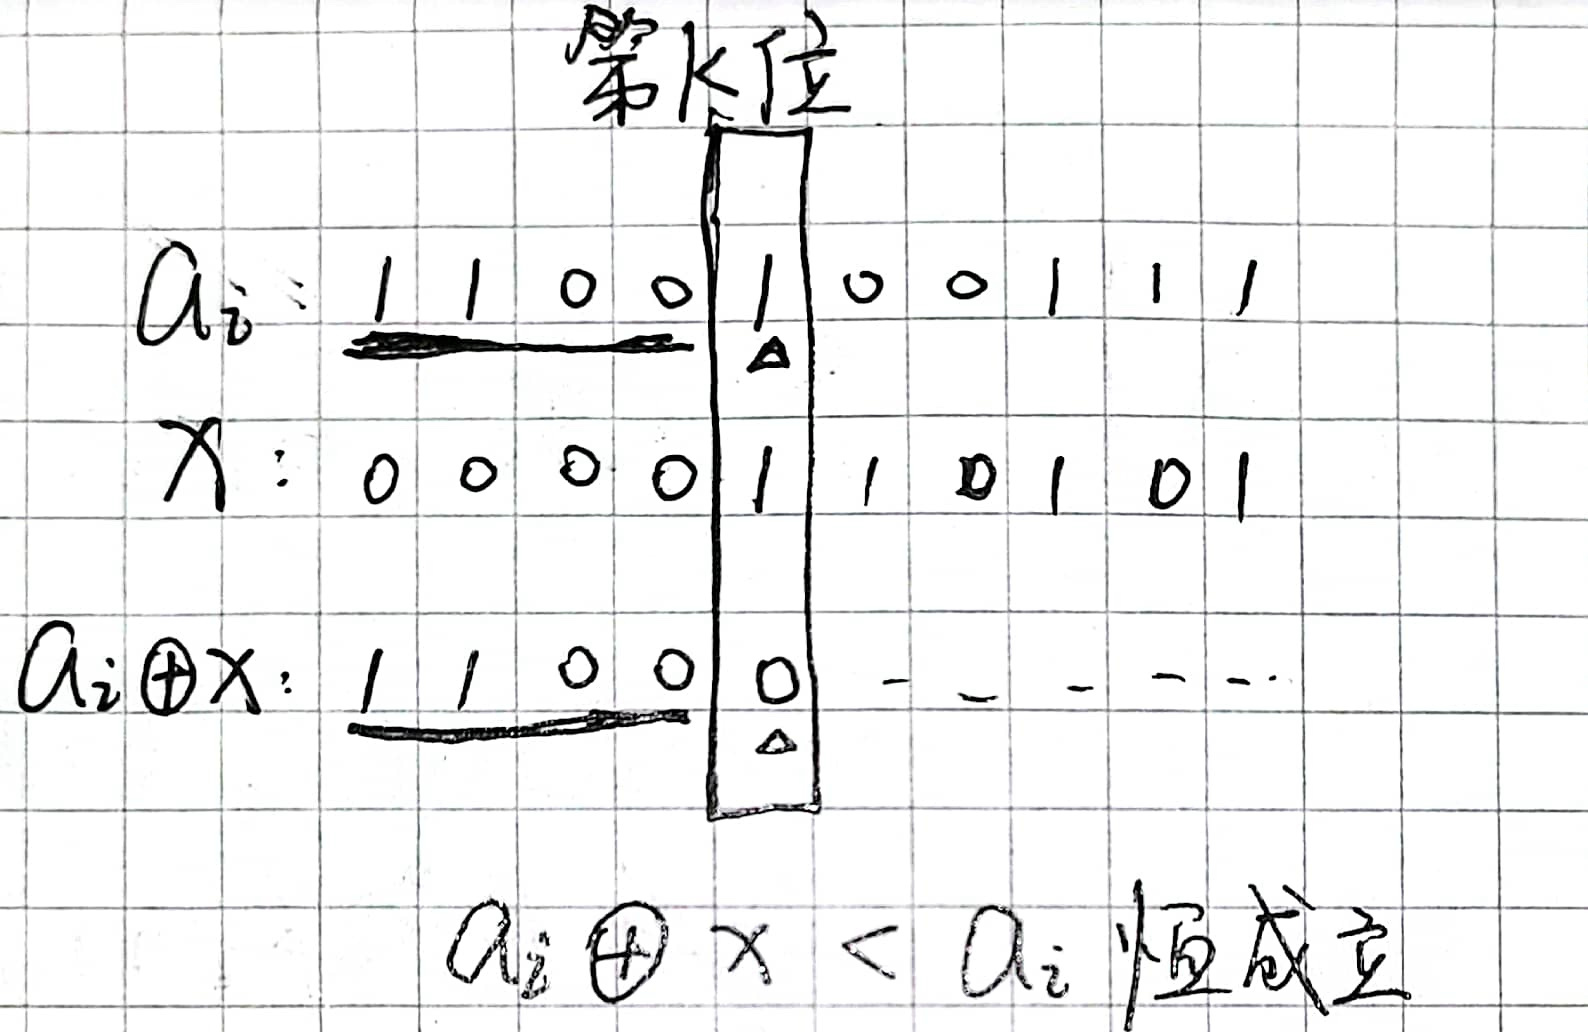 第k位
aᵢ: 1 1 0 0 1 0 0 1 1 1
x: 0 0 0 0 1 1 0 1 0 1
aᵢ⊕x: 1 1 0 0 0 - - - - - ..
aᵢ ⊕ x < aᵢ 恒成立